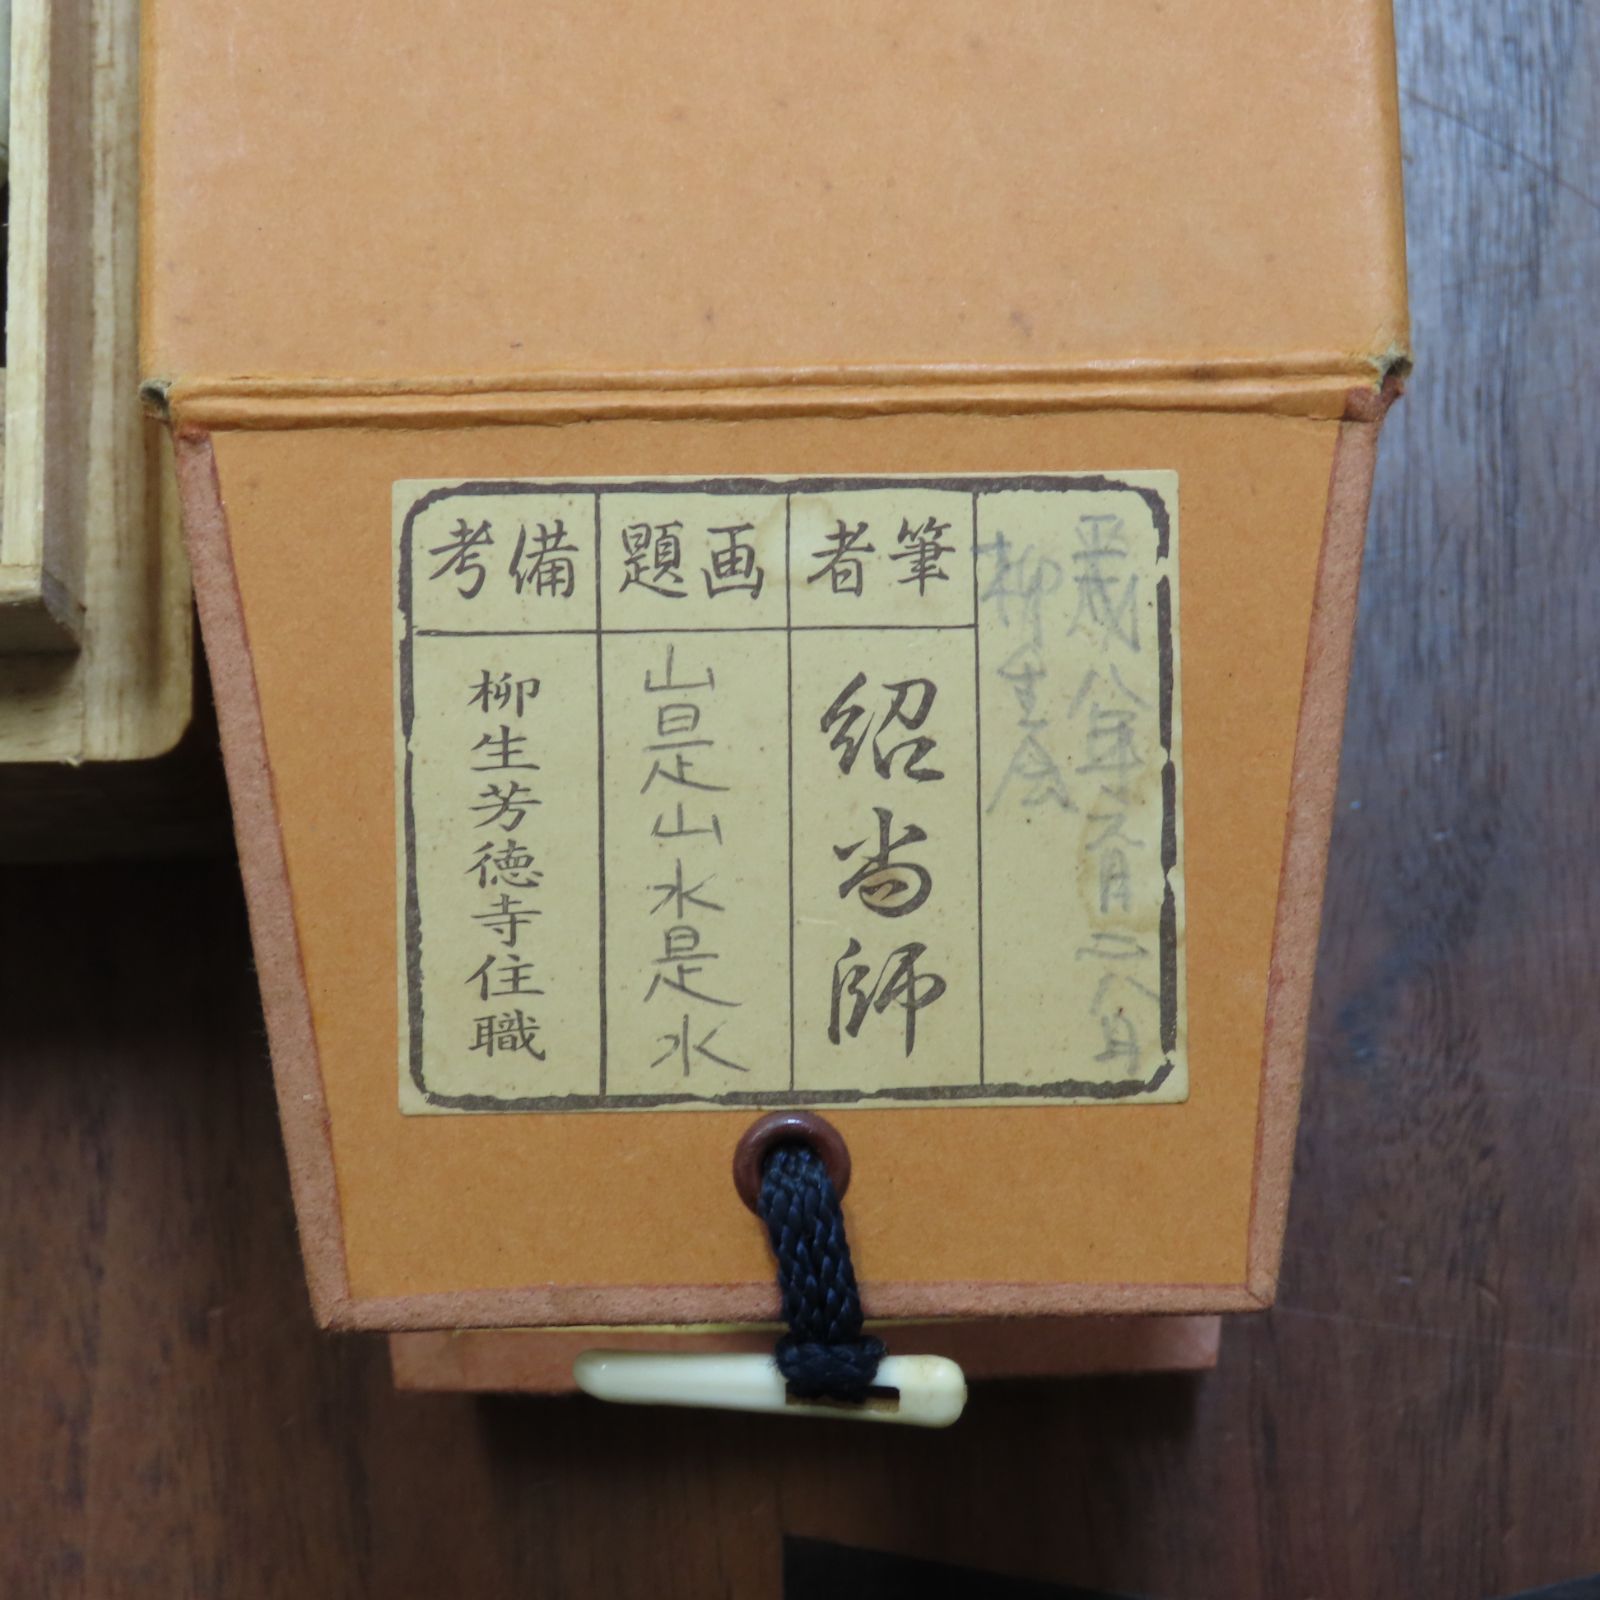 平成八年六月二八日
柳生会
筆者
紹尚師
画題
山是山水是水
備考
柳生芳徳寺住職